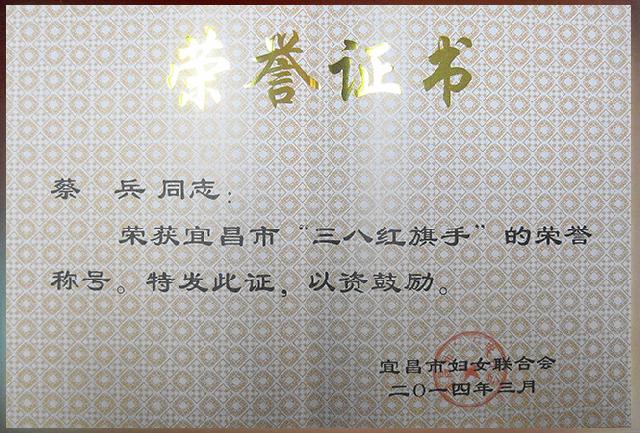 荣誉证书
蔡 兵 同志：
荣获宜昌市“三八红旗手”的荣誉
称号。特发此证，以资鼓励。
宜昌市妇女联合会
二〇一四年三月